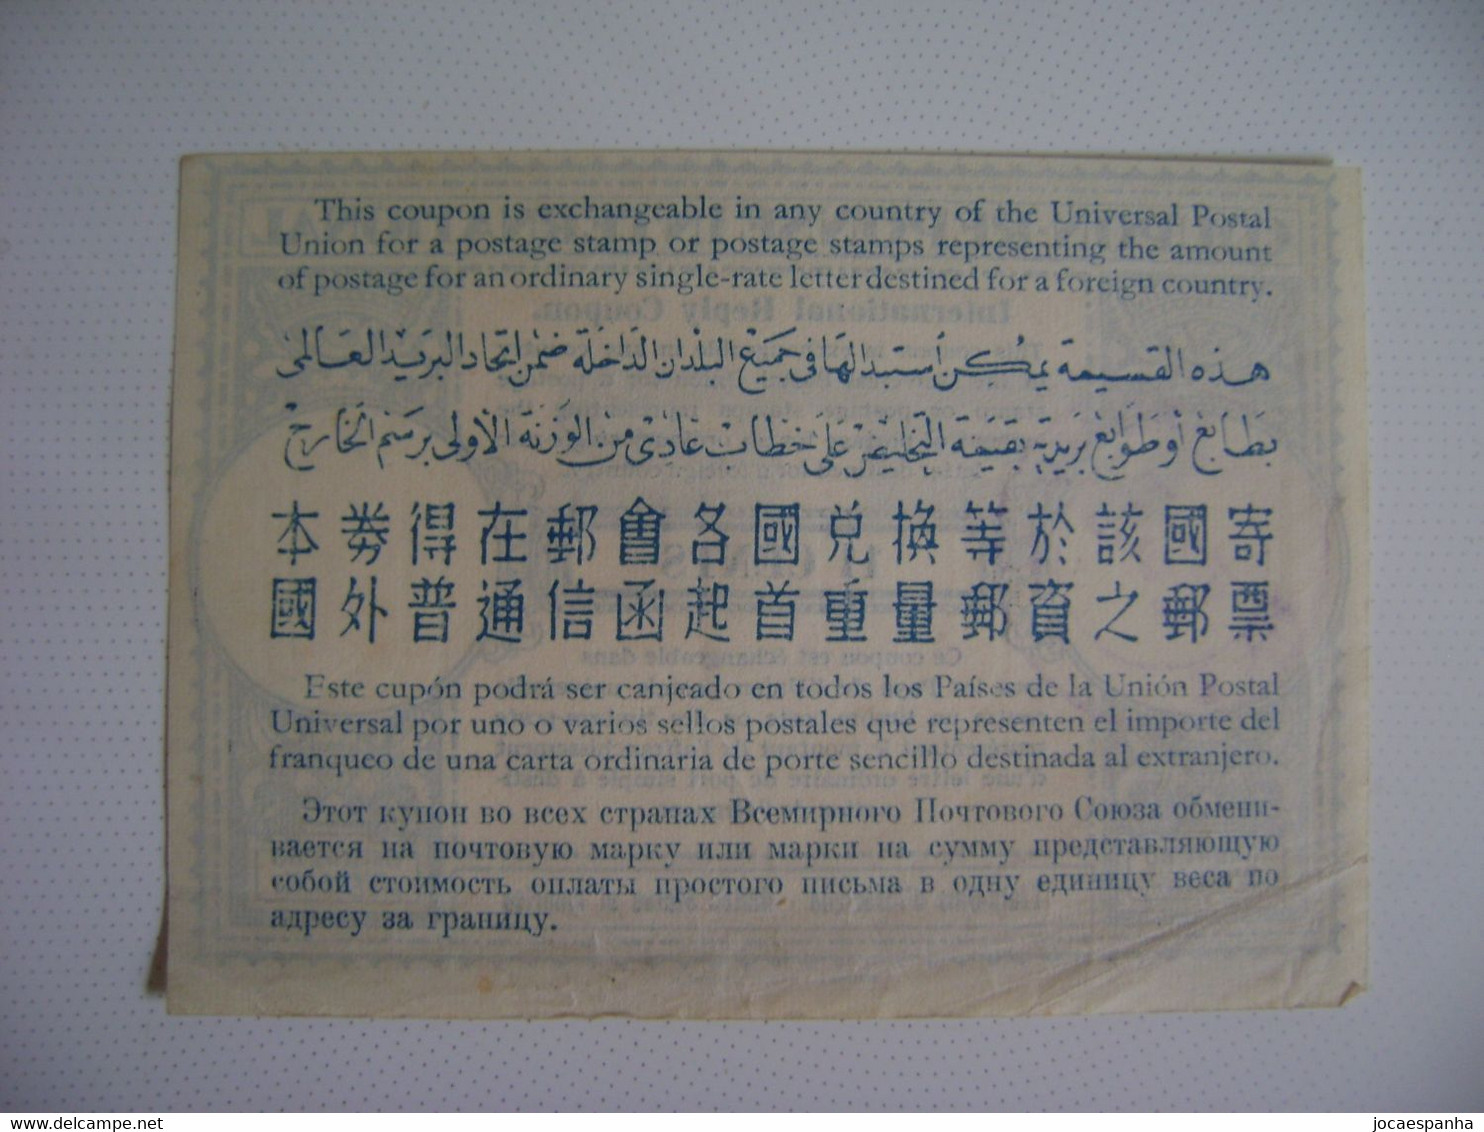 This coupon is exchangeable in any country of the Universal Postal
Union for a postage stamp or postage stamps representing the amount
of postage for an ordinary single-rate letter destined for a foreign country.
هذه القسيمة يمكن استبدالها في جميع البلدان الداخلة ضمن اتحاد البريد العالمى
بطابع أو طوابع بريدية بقيمة التخليص على خطاب عادى من الوزنة الأولى برسم الخارج
本券得在郵會各國兌換等於該國寄
國外普通信函起首重量郵資之郵票
Este cupón podrá ser canjeado en todos los Países de la Unión Postal
Universal por uno o varios sellos postales que representen el importe del
franqueo de una carta ordinaria de porte sencillo destinada al extranjero.
Этот купон во всех странах Всемирного Почтового Союза обмени-
вается на почтовую марку или марки на сумму представляющую
собой стоимость оплаты простого письма в одну единицу веса по
адресу за границу.
International Reply Coupon.
Ce coupon est échangeable dans
d'une lettre ordinaire de port simple à desti-
www.delcampe.net
jocaespanha